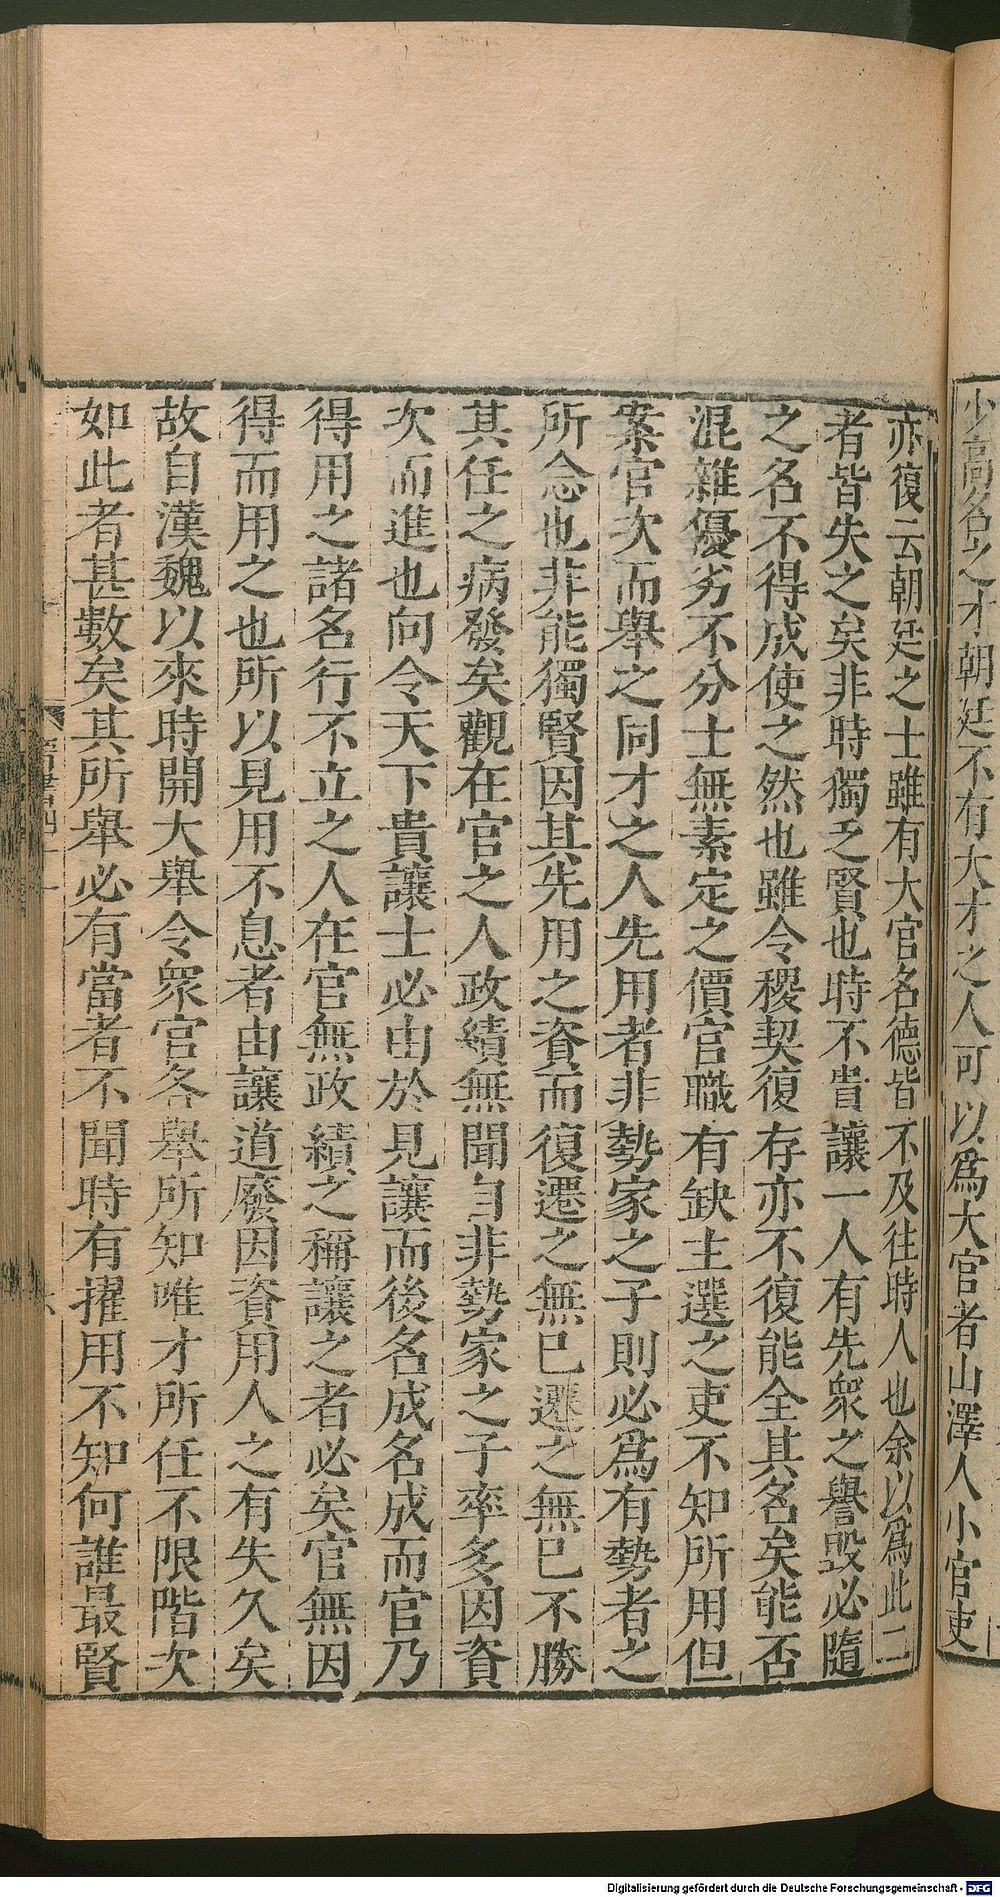 少高名之才朝廷不有大才之人可以爲大官者山澤人小官吏
亦復云朝廷之士雖有大官名德皆不及往時人也余以爲此二
者皆失之矣非時獨乏賢也時不貴讓一人有先衆之譽毀必隨
之名不得成使之然也雖令稷契復存亦不復能全其名矣能否
混雜優劣不分士無素定之價官職有缺主選之吏不知所用但
案官次而舉之同才之人先用者非勢家之子則必爲有勢者之
所念也非能獨賢因其先用之資而復遷之無已遷之無已不勝
其任之病發矣觀在官之人政績無聞自非勢家之子率多因資
次而進也向令天下貴讓士必由於見讓而後名成名成而官乃
得用之諸名行不立之人在官無政績之稱讓之者必矣官無因
得而用之也所以見用不息者由讓道廢因資用人之有失久矣
故自漢魏以來時開大舉令衆官各舉所知唯才所任不限階次
如此者甚數矣其所舉必有當者不聞時有擢用不知何誰最賢
Digitalisierung gefördert durch die Deutsche Forschungsgemeinschaft - DFG